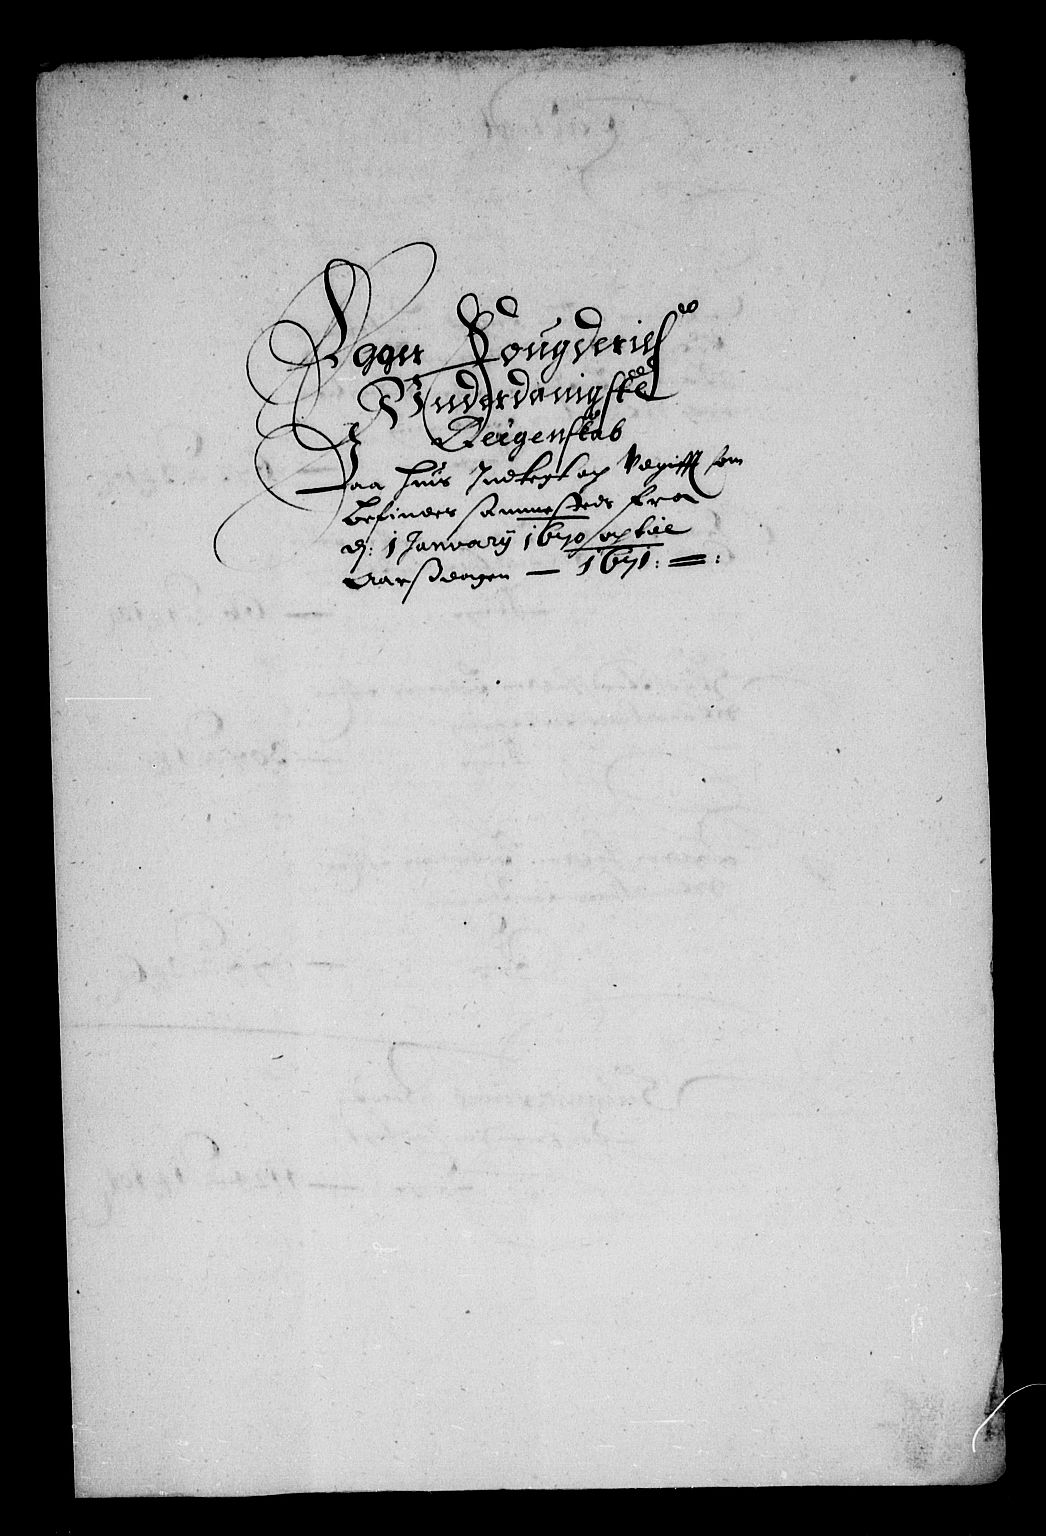 Egger Fougderies
Underdanigste
Reigenskab
Paa huis Indtegt og Udgifft som
befindes sammesteds fra
d: 1 January 1670 og til
Aarsdagen — 1671: